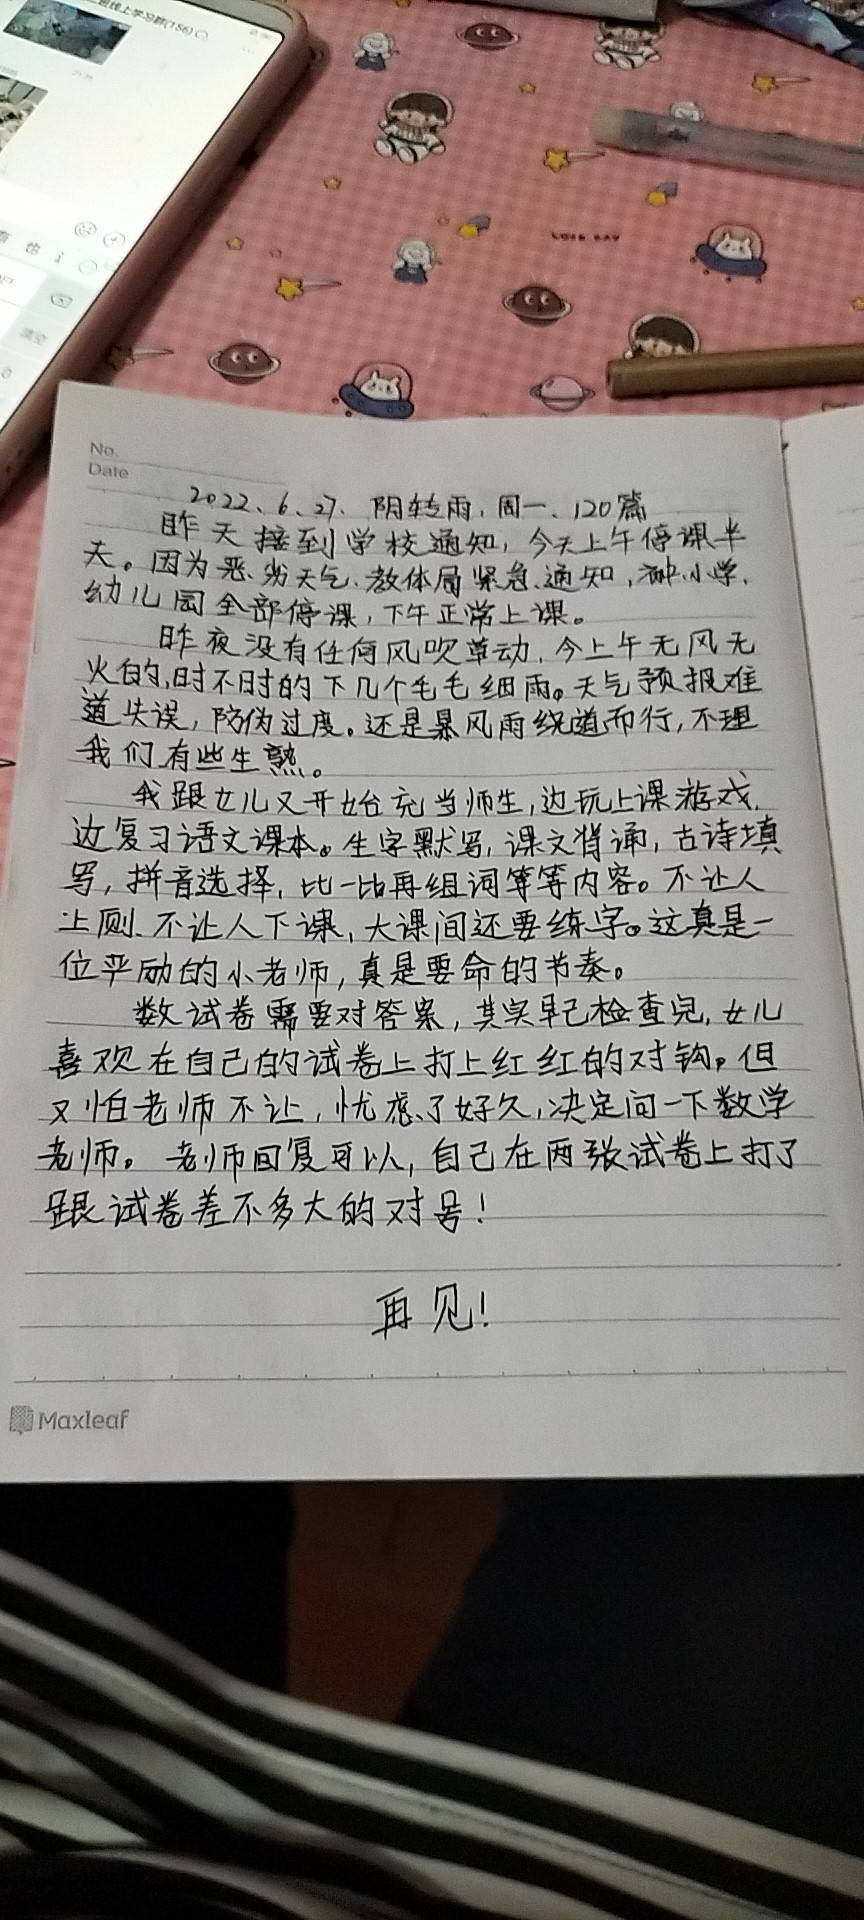 班线上学习群(156)
No.
Date
2022、6、27、阴转雨,周一、120篇
昨天接到学校通知,今天上午停课半
天。因为恶劣天气、教体局紧急通知,小学、
幼儿园全部停课,下午正常上课。
昨夜没有任何风吹草动,今上午无风无
火的,时不时的下几个毛毛细雨。天气预报难
道失误,防伪过度。还是暴风雨绕道而行,不理
我们有些生熟。
我跟女儿又开始充当师生,边玩上课游戏,
边复习语文课本。生字默写,课文背诵,古诗填
写,拼音选择,比一比再组词等等内容。不让人
上厕、不让人下课,大课间还要练字。这真是一
位严励的小老师,真是要命的节奏。
数试卷需要对答案,其实早已检查完,女儿
喜欢在自己的试卷上打上红红的对钩。但
又怕老师不让,忧虑了好久,决定问一下数学
老师。老师回复可以,自己在两张试卷上打了
跟试卷差不多大的对号!
再见!
Maxleaf